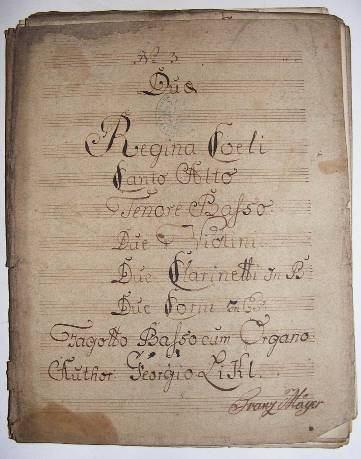 No 3
Due
Regina Coeli
Canto Alto
Tenore Basso
Due Violini
Due Clarinetti in B
Due Corni in B
Fagotto Basso cum Organo
Author Georgio Likl.
Franz Mayer